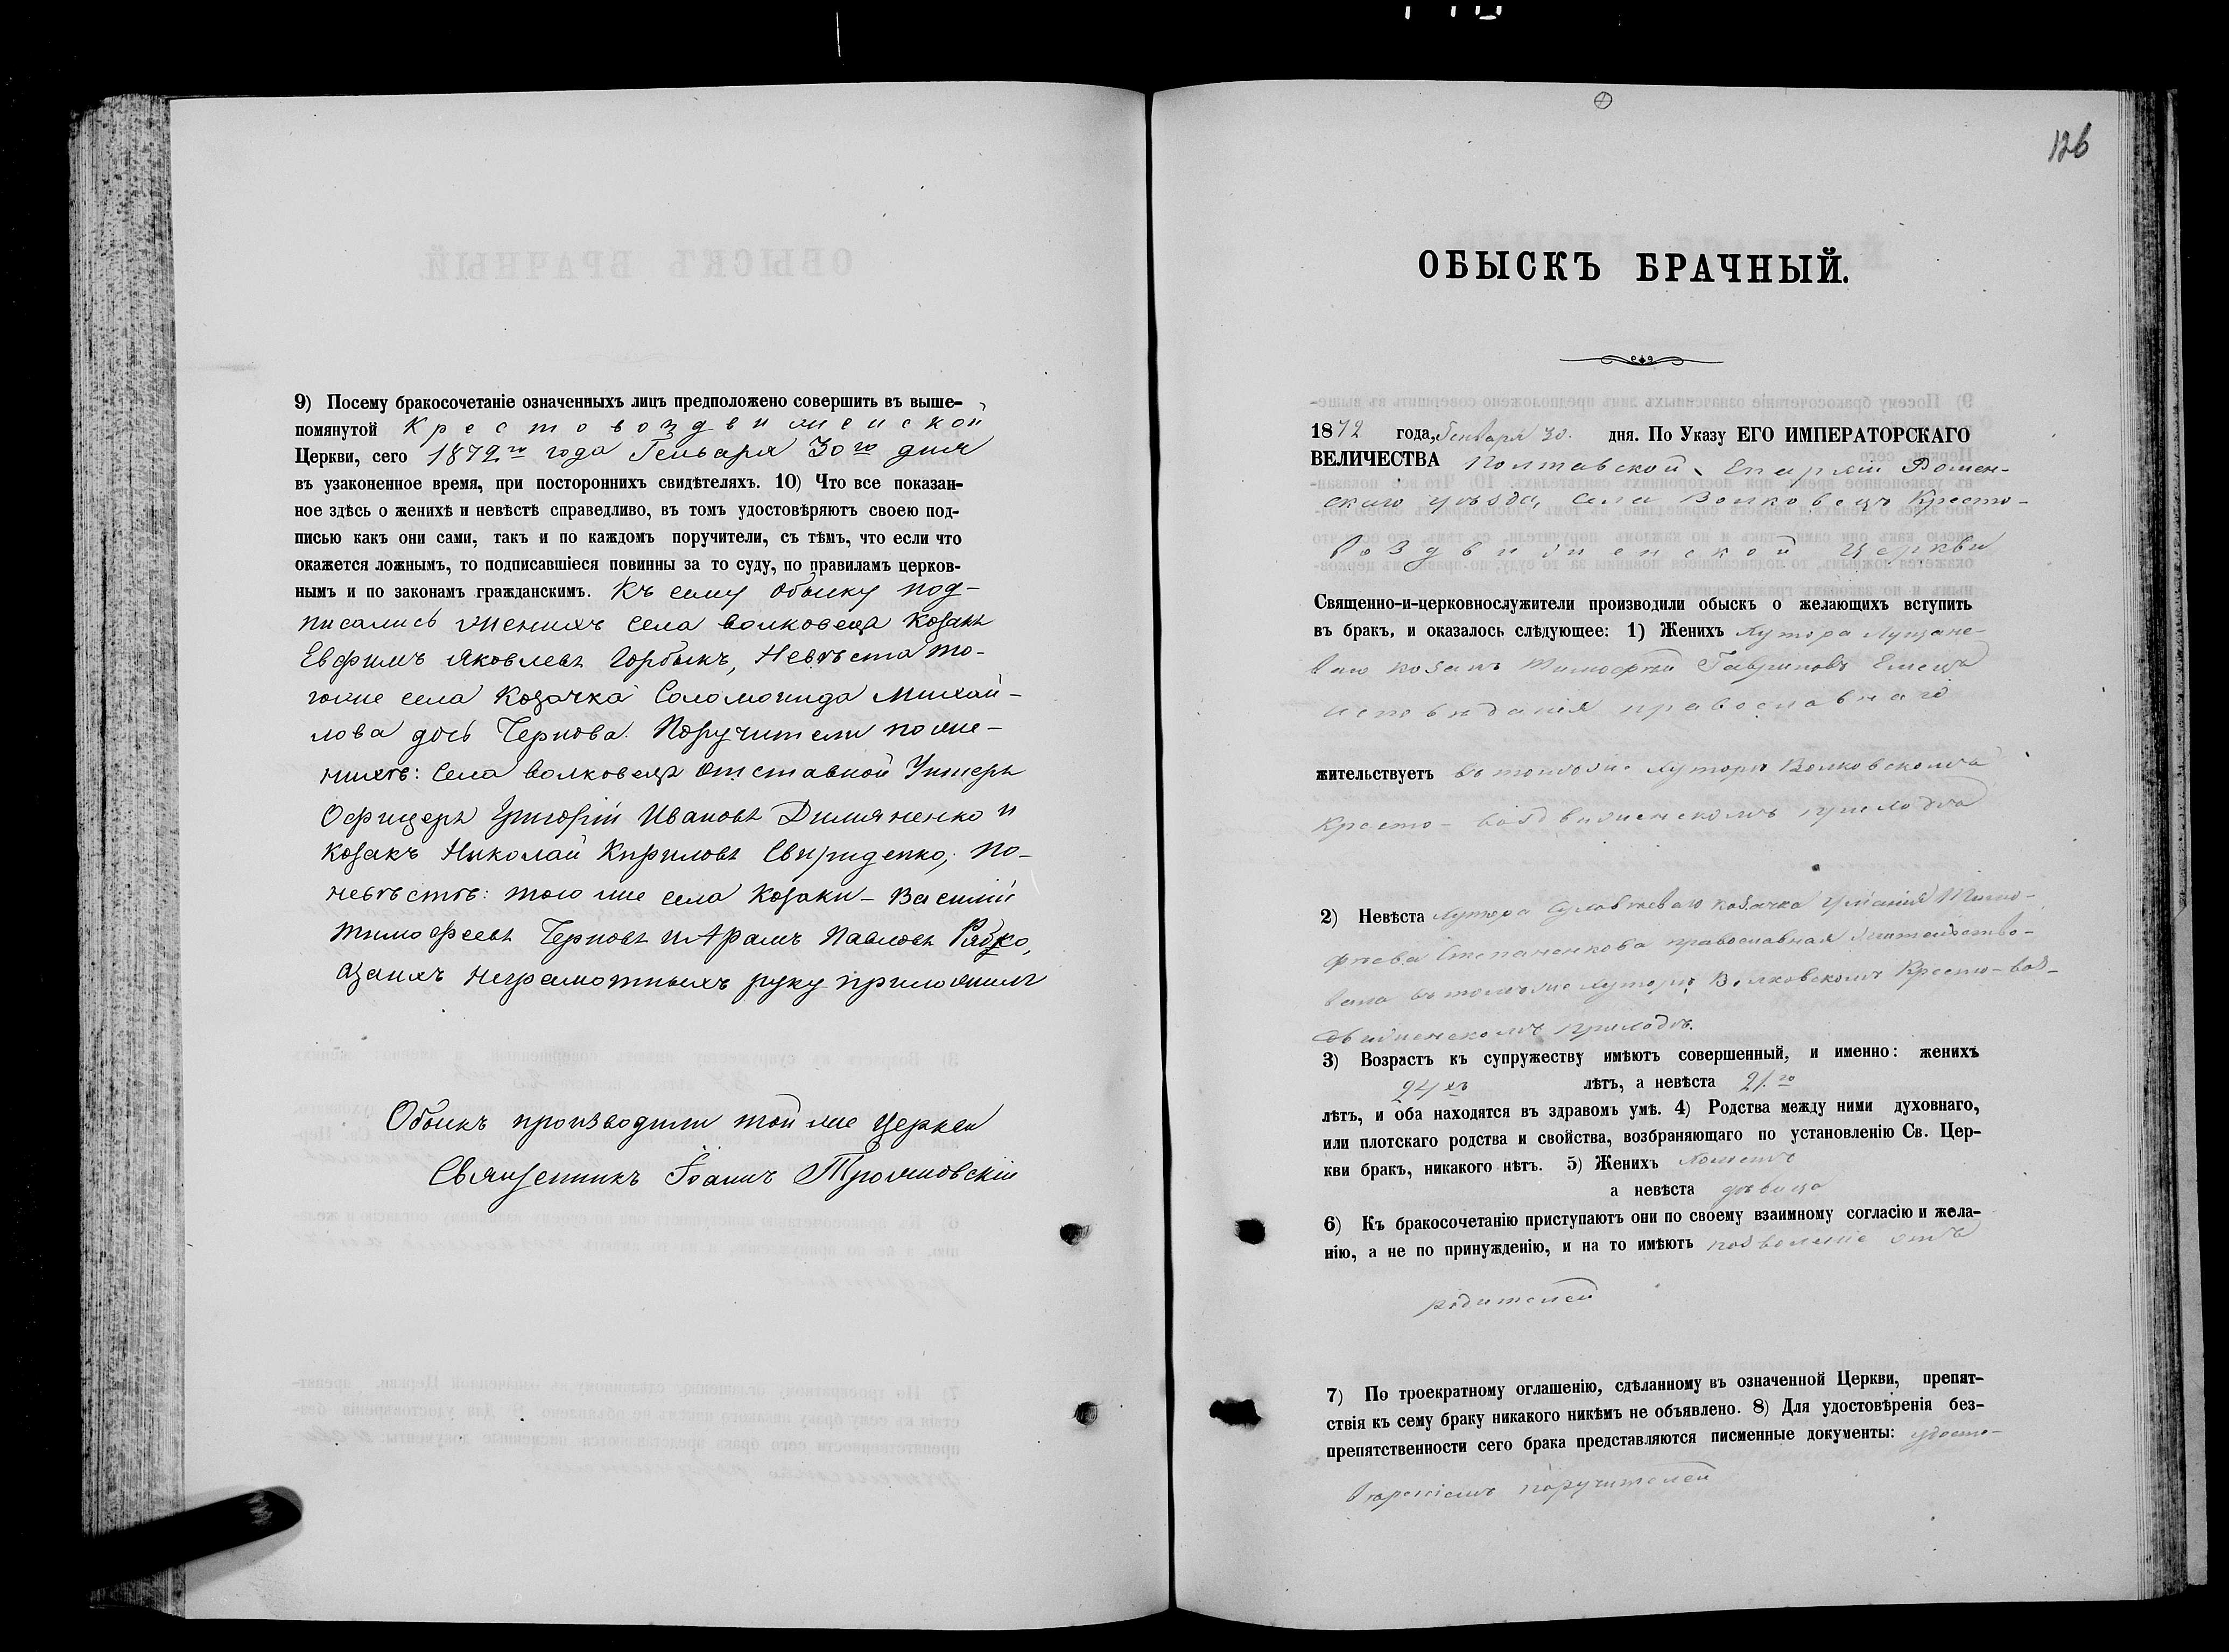 9) Посему бракосочетаніе означенныхъ лицъ предположено совершить въ выше-
помянутой Крестовоздвиженской
Церкви, сего 1872го года Генваря 30го дня
въ узаконенное время, при постороннихъ свидѣтеляхъ. 10) Что все показан-
ное здѣсь о женихѣ и невѣстѣ справедливо, въ томъ удостовѣряютъ своею под-
писью какъ они сами, такъ и по каждомъ поручители, съ тѣмъ, что если что
окажется ложнымъ, то подписавшіеся повинны за то суду, по правиламъ церков-
нымъ и по законамъ гражданскимъ. Къ сему обыску под-
писались женихъ села Волковецъ козакъ
Евфимъ Яковлевъ Горбыкъ, Невѣста то-
гоже села Козачка Соломонида Михай-
лова дочь Чернова. Поручители по же-
нихѣ: села Волковецъ отставной Унтеръ
Офицеръ Григорій Ивановъ Димяненко и
козакъ Николай Кириловъ Свириденко, по-
невѣстѣ: того же села козаки - Василій
Тимофеевъ Черновъ и Павловъ
азанихъ неграмотныхъ руку приложилъ
Обыскъ производили той же церкви
Священникъ Іоаннъ Трояновскій
126
ОБЫСКЪ БРАЧНЫЙ.
1872 года, Генваря 30. дня. По Указу ЕГО ИМПЕРАТОРСКАГО
ВЕЛИЧЕСТВА Полтавской Епархіи Ромен-
скаго уѣзда, села Волковецъ Кресто-
Воздвиженской церкви
Священно-и-церковнослужители производили обыскъ о желающихъ вступить
въ бракъ, и оказалось слѣдующее: 1) Женихъ Хутора
козакъ Тимофей Гавриловъ Емецъ
исповѣданія православнаго
жительствуетъ въ томъже Хуторѣ Волковскомъ
Кресто-воздвиженскомъ приходѣ
2) Невѣста Хутора козачка Тимо-
фѣева Степаненкова православная жительство-
вала въ томъже Хуторѣ Волковскомъ Кресто-воз-
движенскомъ приходѣ.
3) Возрастъ къ супружеству имѣютъ совершенный, и именно: женихъ
24хъ лѣтъ, а невѣста 21.го
лѣтъ, и оба находятся въ здравомъ умѣ. 4) Родства между ними духовнаго,
или плотскаго родства и свойства, возбраняющаго по установленію Св. Цер-
кви бракъ, никакого нѣтъ. 5) Женихъ холостъ
а невѣста дѣвица
6) Къ бракосочетанію приступаютъ они по своему взаимному согласію и жела-
нію, а не по принужденію, и на то имѣютъ позволеніе отъ
родителей
7) По троекратному оглашенію, сдѣланному въ означенной Церкви, препят-
ствія къ сему браку никакого никѣмъ не объявлено. 8) Для удостовѣренія без-
препятственности сего брака представляются писменные документы: удосто-
вѣреніемъ поручителей